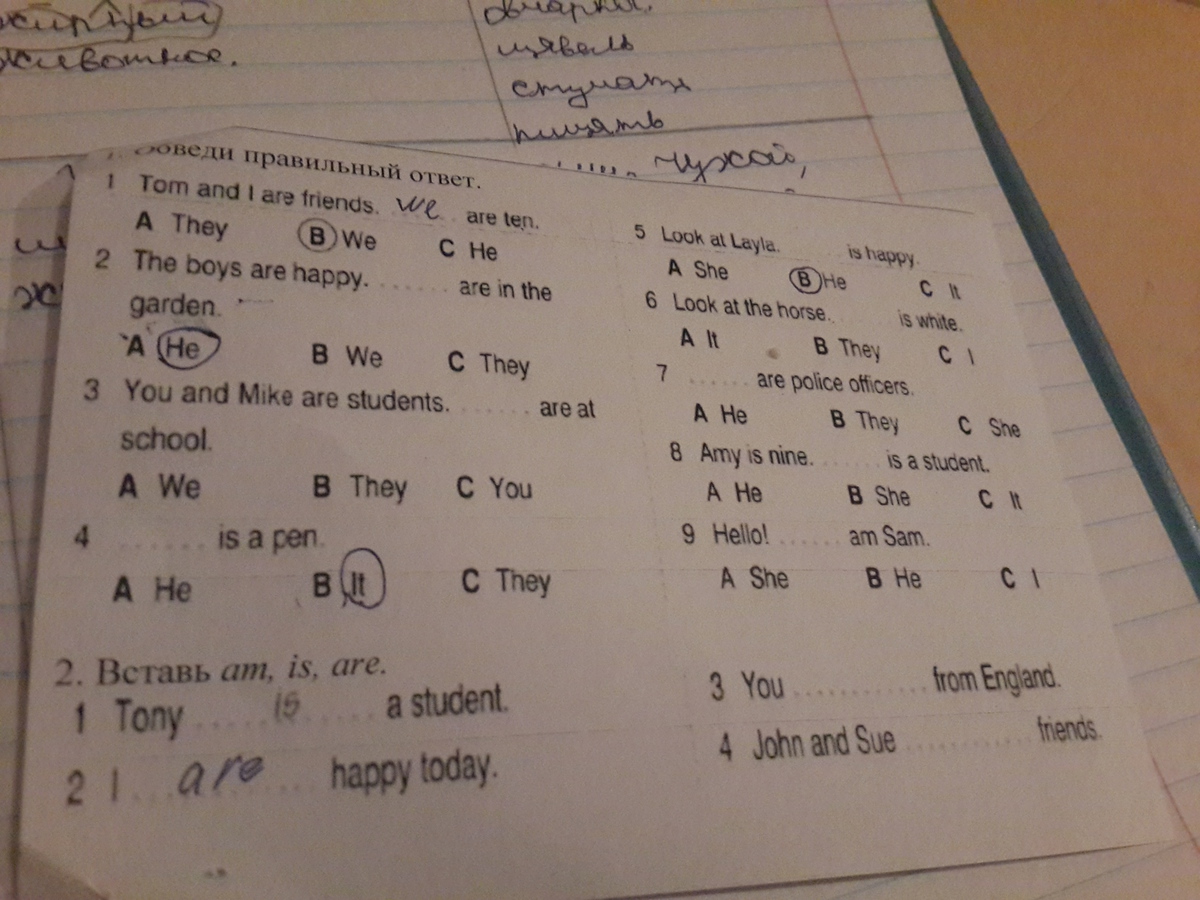 животное.
овчарки.
щавель
стучать
пищять
чужой,
Обведи правильный ответ.
1 Tom and I are friends. we are ten.
A They B We C He
2 The boys are happy. ........ are in the
garden.
A He B We C They
3 You and Mike are students. ........ are at
school.
A We B They C You
4 ........ is a pen.
A He B It C They
5 Look at Layla. ........ is happy.
A She B He C It
6 Look at the horse. ........ is white.
A It B They C I
7 ........ are police officers.
A He B They C She
8 Amy is nine. ........ is a student.
A He B She C It
9 Hello! ........ am Sam.
A She B He C I
2. Вставь am, is, are.
1 Tony is a student.
2 I are happy today.
3 You ............ from England.
4 John and Sue ............ friends.